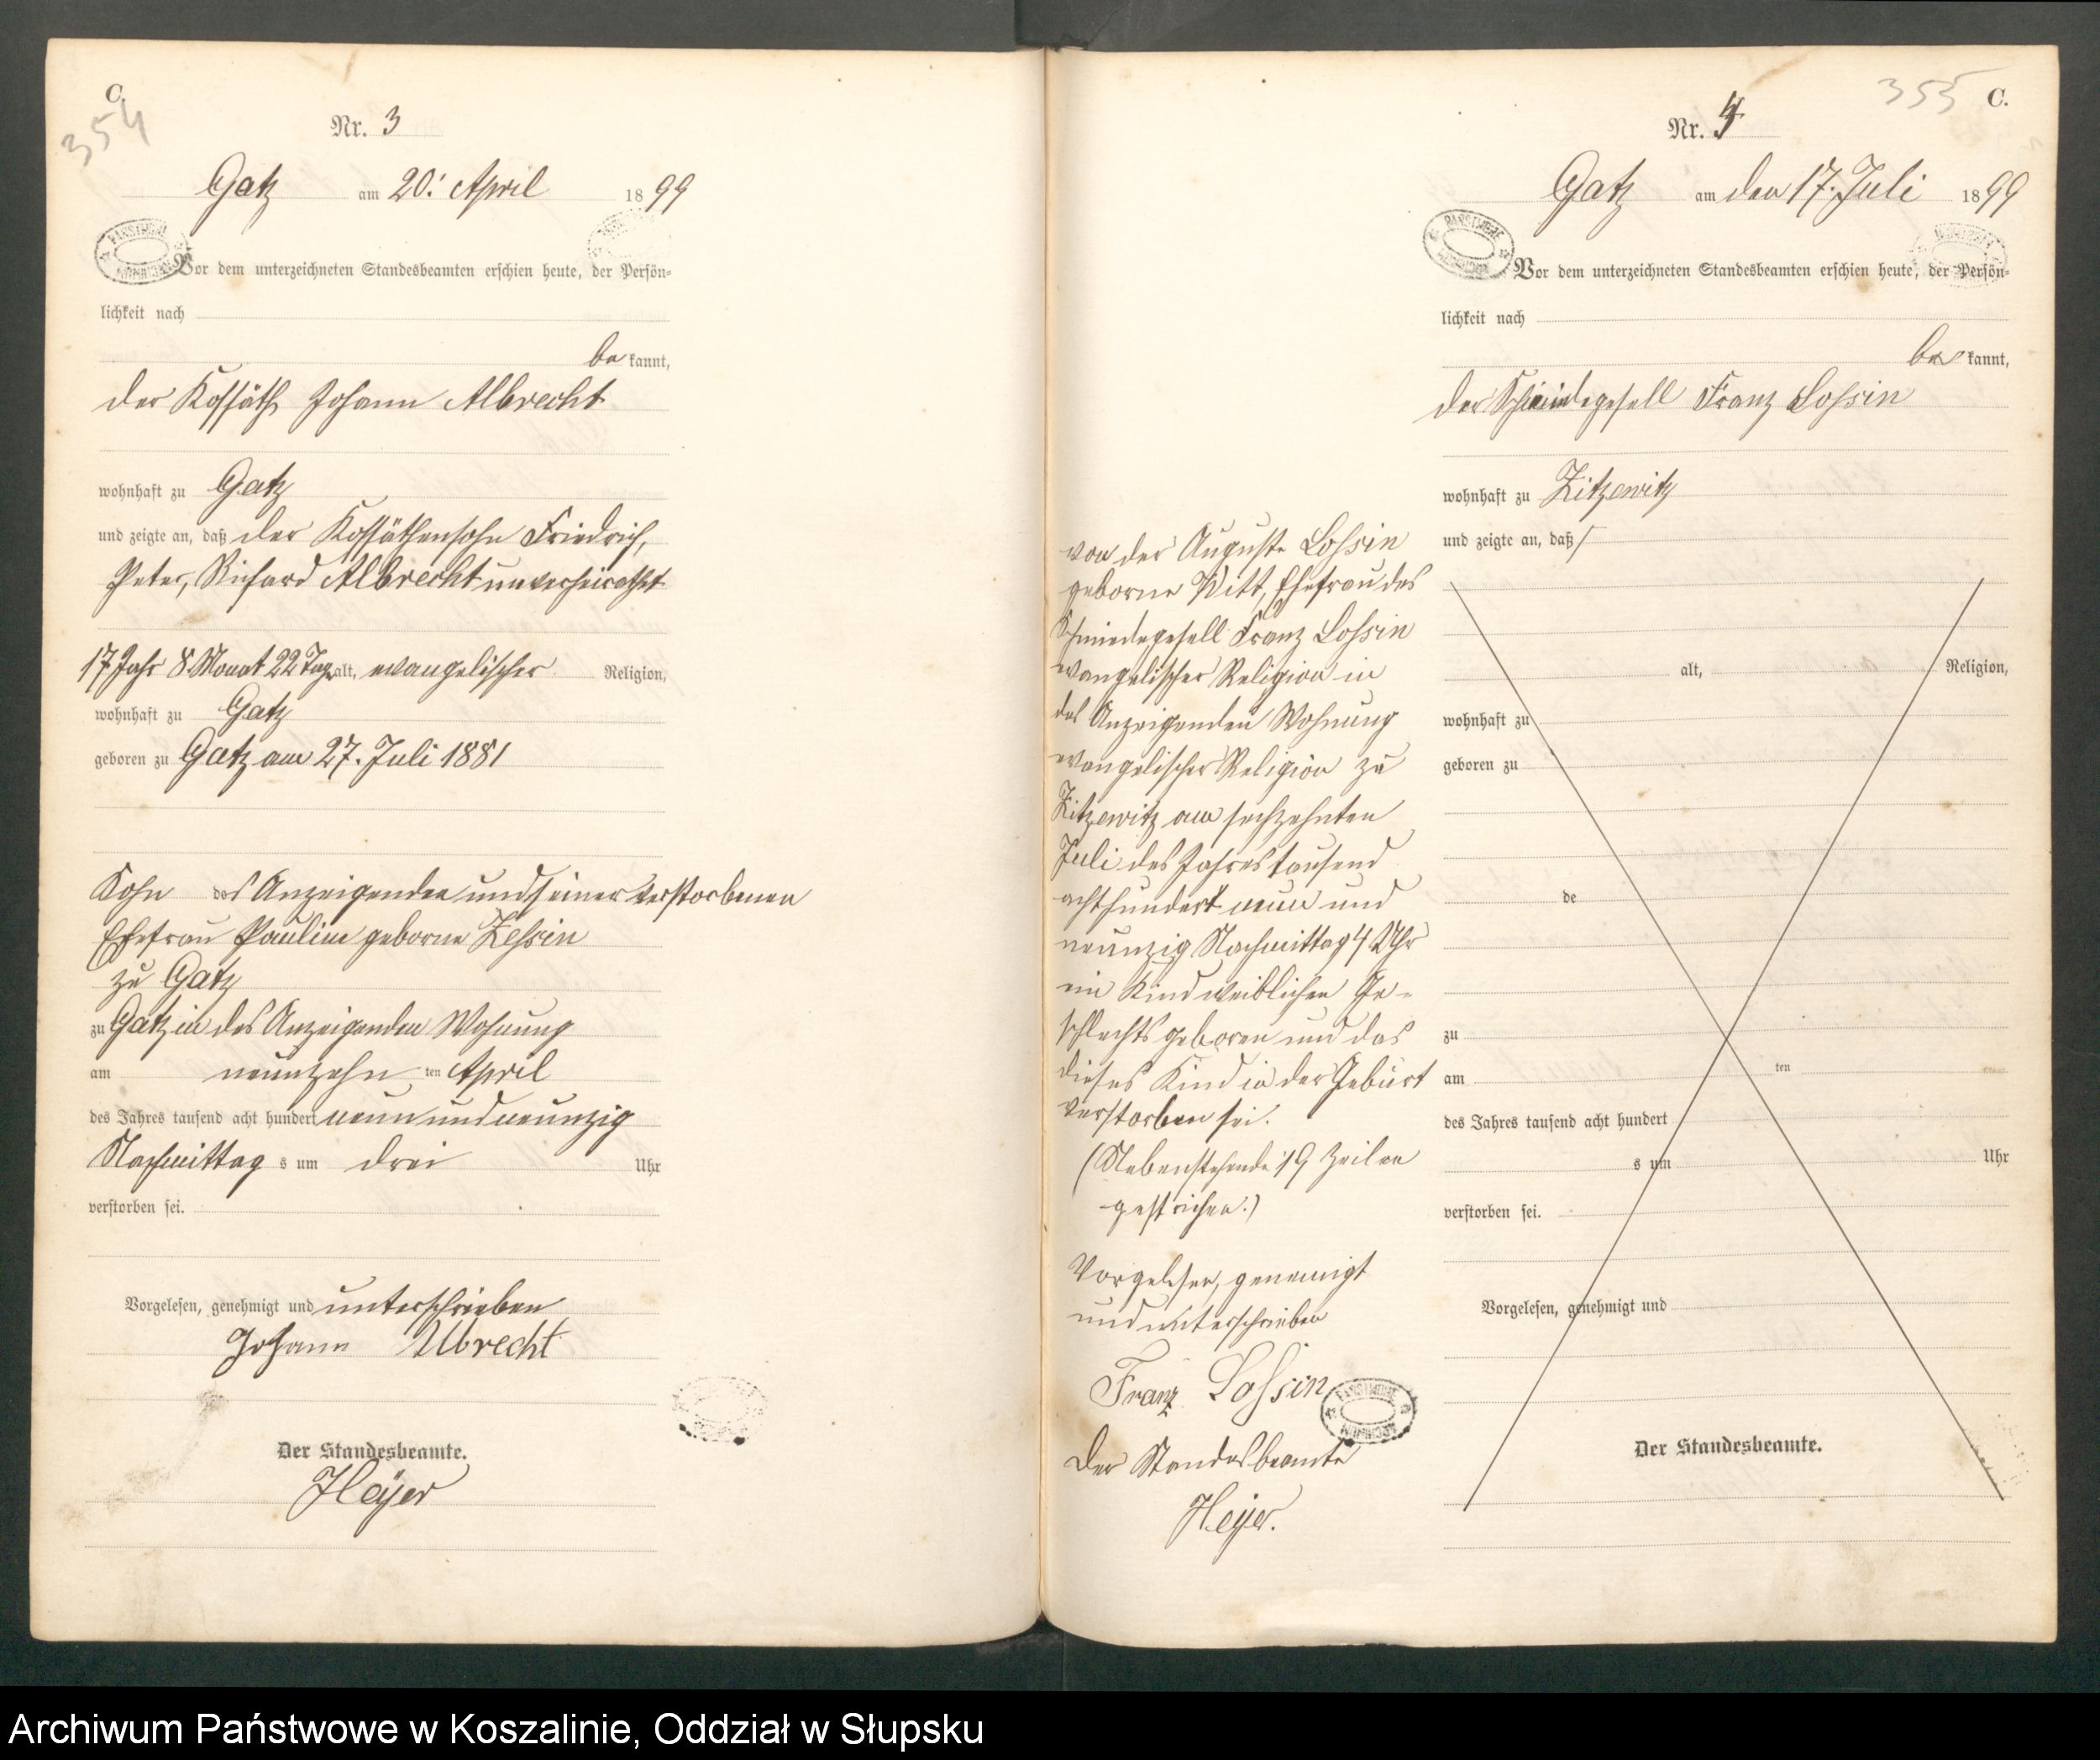 C.
354
Nr. 3
Gatz am 20. April 1899
Vor dem unterzeichneten Standesbeamten erschien heute, der Persön-
lichkeit nach
be kannt,
der Kossäth Johann Albrecht
wohnhaft zu Gatz
und zeigte an, daß der Kossäthensohn Friedrich,
Peter, Richard Albrecht unverheirathet
17 Jahr 8 Monat 22 Tage alt, evangelischer Religion,
wohnhaft zu Gatz
geboren zu Gatz am 27. Juli 1881
Sohn des Anzeigenden und seiner verstorbenen
Ehefrau Pauline geborne Zessin
zu Gatz
zu Gatz in des Anzeigenden Wohnung
am neunzehn ten April
des Jahres tausend acht hundert neun und neunzig
Nachmittag s um drei Uhr
verstorben sei.
Vorgelesen, genehmigt und unterschrieben
Johann Albrecht
Der Standesbeamte.
Heyer
355 C.
Nr. 4
Gatz am den 17. Juli 1899
Vor dem unterzeichneten Standesbeamten erschien heute, der Persön-
lichkeit nach
be kannt,
der Schmiedegesell Franz Lossin
wohnhaft zu Zitzewitz
und zeigte an, daß
alt, Religion,
wohnhaft zu
geboren zu
de
zu
am ten
des Jahres tausend acht hundert
s um Uhr
verstorben sei.
Vorgelesen, genehmigt und
Der Standesbeamte.
von der Auguste Lossin
geborne Witt, Ehefrau des
Schmiedegesell Franz Lossin
evangelischer Religion in
des Anzeigenden Wohnung
evangelischer Religion zu
Zitzewitz am sechzehnten
Juli des Jahres tausend
achthundert neun und
neunzig Nachmittag 4 Uhr
ein Kind weiblichen Ge-
schlechts geboren und das
dieses Kind in der Geburt
verstorben sei.
(Nebenstehende 19 Zeilen
gestrichen.)
Vorgelesen, genemigt
und unterschrieben
Franz Lossin
Der Standesbeamte
Heyer.
Archiwum Państwowe w Koszalinie, Oddział w Słupsku